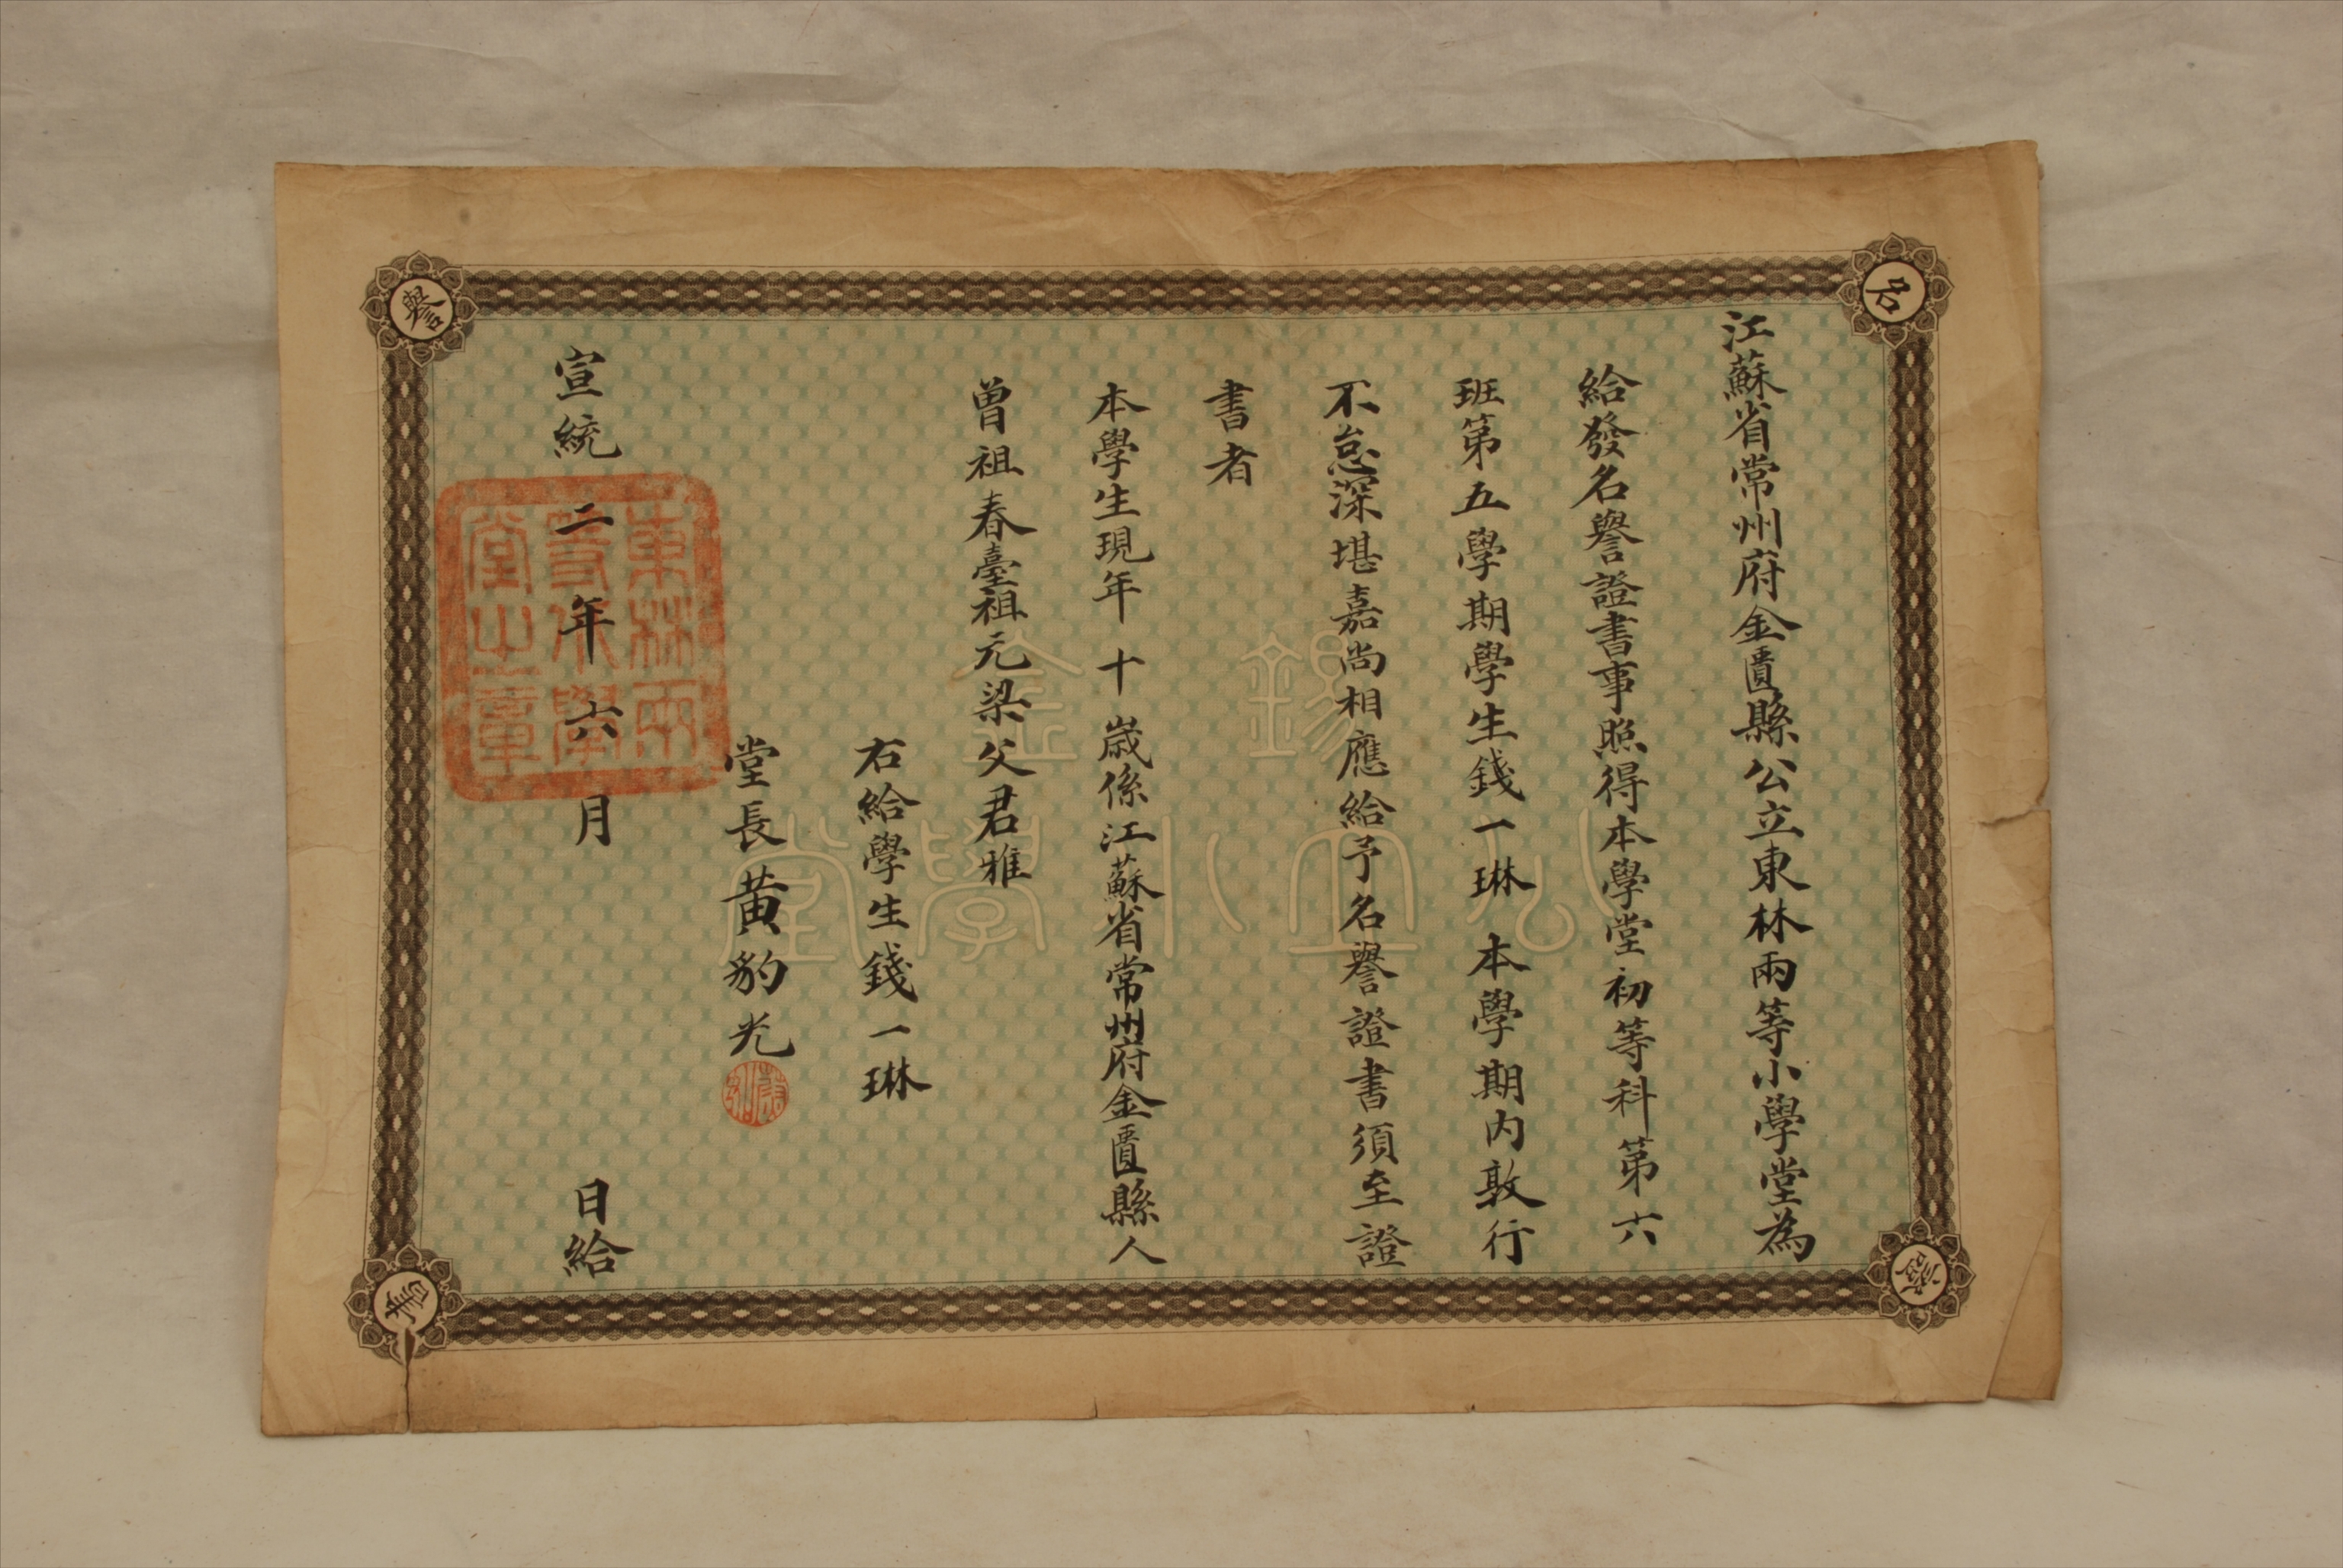 名譽證書
江蘇省常州府金匱縣公立東林兩等小學堂為
給發名譽證書事照得本學堂初等科第六
班第五學期學生錢一琳本學期內敦行
不怠深堪嘉尚相應給予名譽證書須至證
書者
本學生現年十歲係江蘇省常州府金匱縣人
曾祖春臺祖元梁父君雅
右給學生錢一琳
堂長黃豹光
宣統二年六月 日給
東林兩等小學堂之章
錫金
公立小學堂